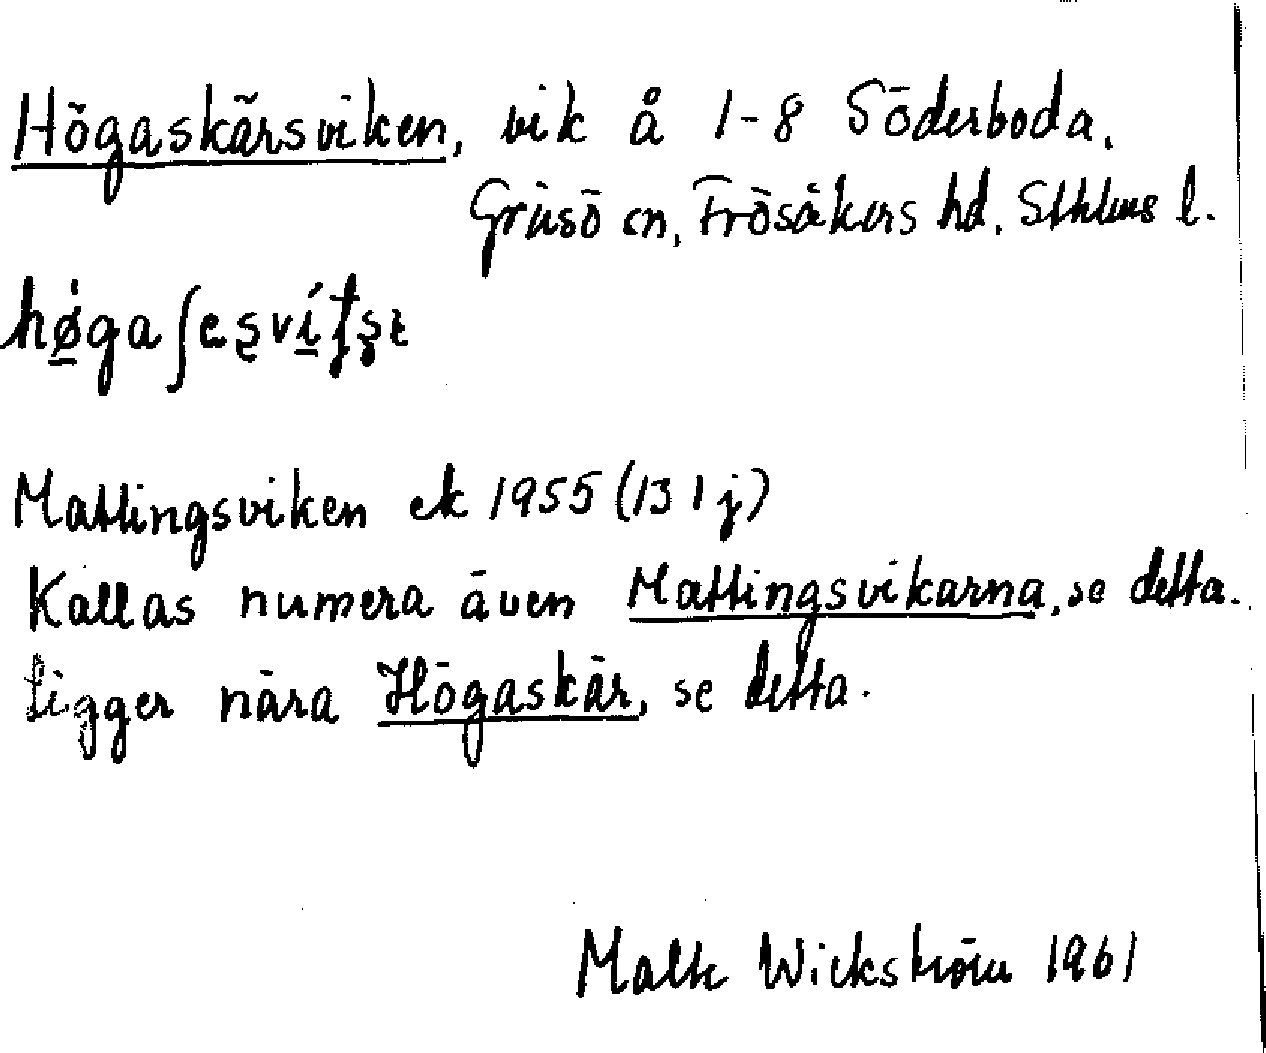 Högaskärsviken, vik å 1-8 Söderboda.
Gräsö sn, Frösåkers hd. Sthlms l.
Mattingsviken ek 1955 (13 1 j)
Kallas numera även Mattingsvikarna, se detta.
Ligger nära Högaskär, se detta.
Malte Wickström 1961